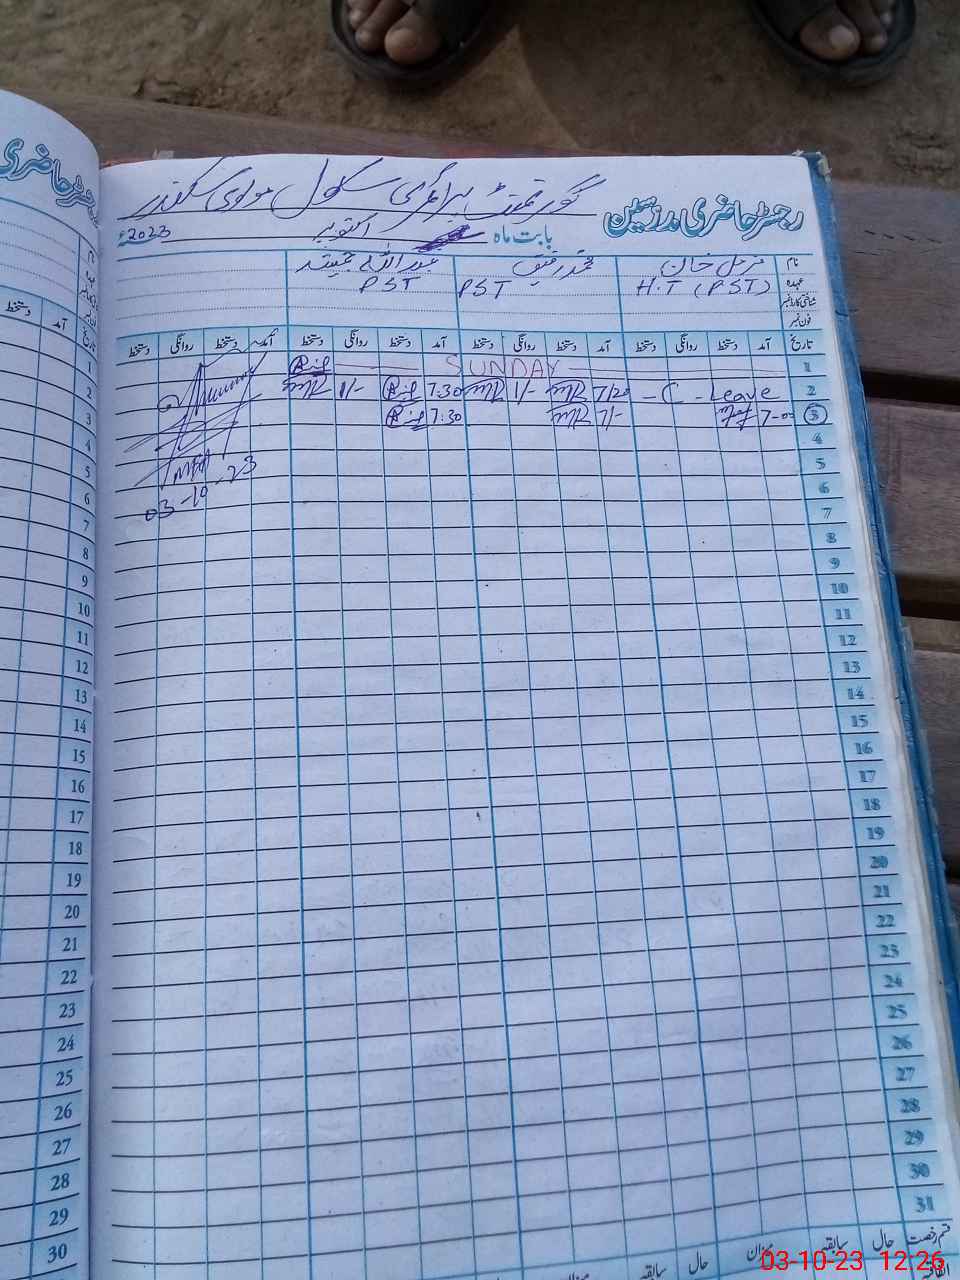 رجسٹر حاضری مدرسین گورنمنٹ پرائمری سکول مولوی سکندر
بابت ماہ اکتوبر 2023ء
نام
مزمل خان
محمد رفیق
عہدہ
H.T (PST)
PST
PST
شناختی کارڈ نمبر
فون نمبر
تاریخ آمد دستخط روانگی دستخط آمد دستخط روانگی دستخط آمد دستخط روانگی دستخط آمد دستخط روانگی دستخط
1 SUNDAY
2 - C - Leave 7/20 1/- 7:30 1/-
3 7-00 7/- 7:30
4
5
6
7
8
9
10
11
12
13
14
15
16
17
18
19
20
21
22
23
24
25
26
27
28
29
30
31
03-10-23
قسم رخصت حال سابقہ میزان حال سابقہ میزان حال
اتفاقیہ
رجسٹر حاضری
تاریخ آمد دستخط
1
2
3
4
5
6
7
8
9
10
11
12
13
14
15
16
17
18
19
20
21
22
23
24
25
26
27
28
29
30
03-10-23 12:26